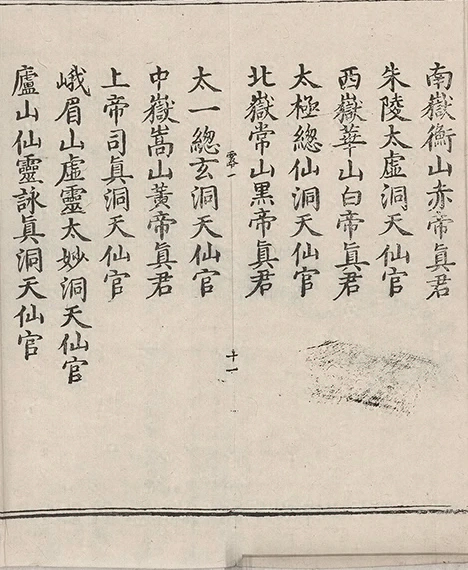 南嶽衡山赤帝眞君
朱陵太虛洞天仙官
西嶽華山白帝眞君
太極總仙洞天仙官
北嶽常山黑帝眞君
十一
太一總玄洞天仙官
中嶽嵩山黃帝眞君
上帝司眞洞天仙官
峨眉山虛靈太妙洞天仙官
廬山仙靈詠眞洞天仙官